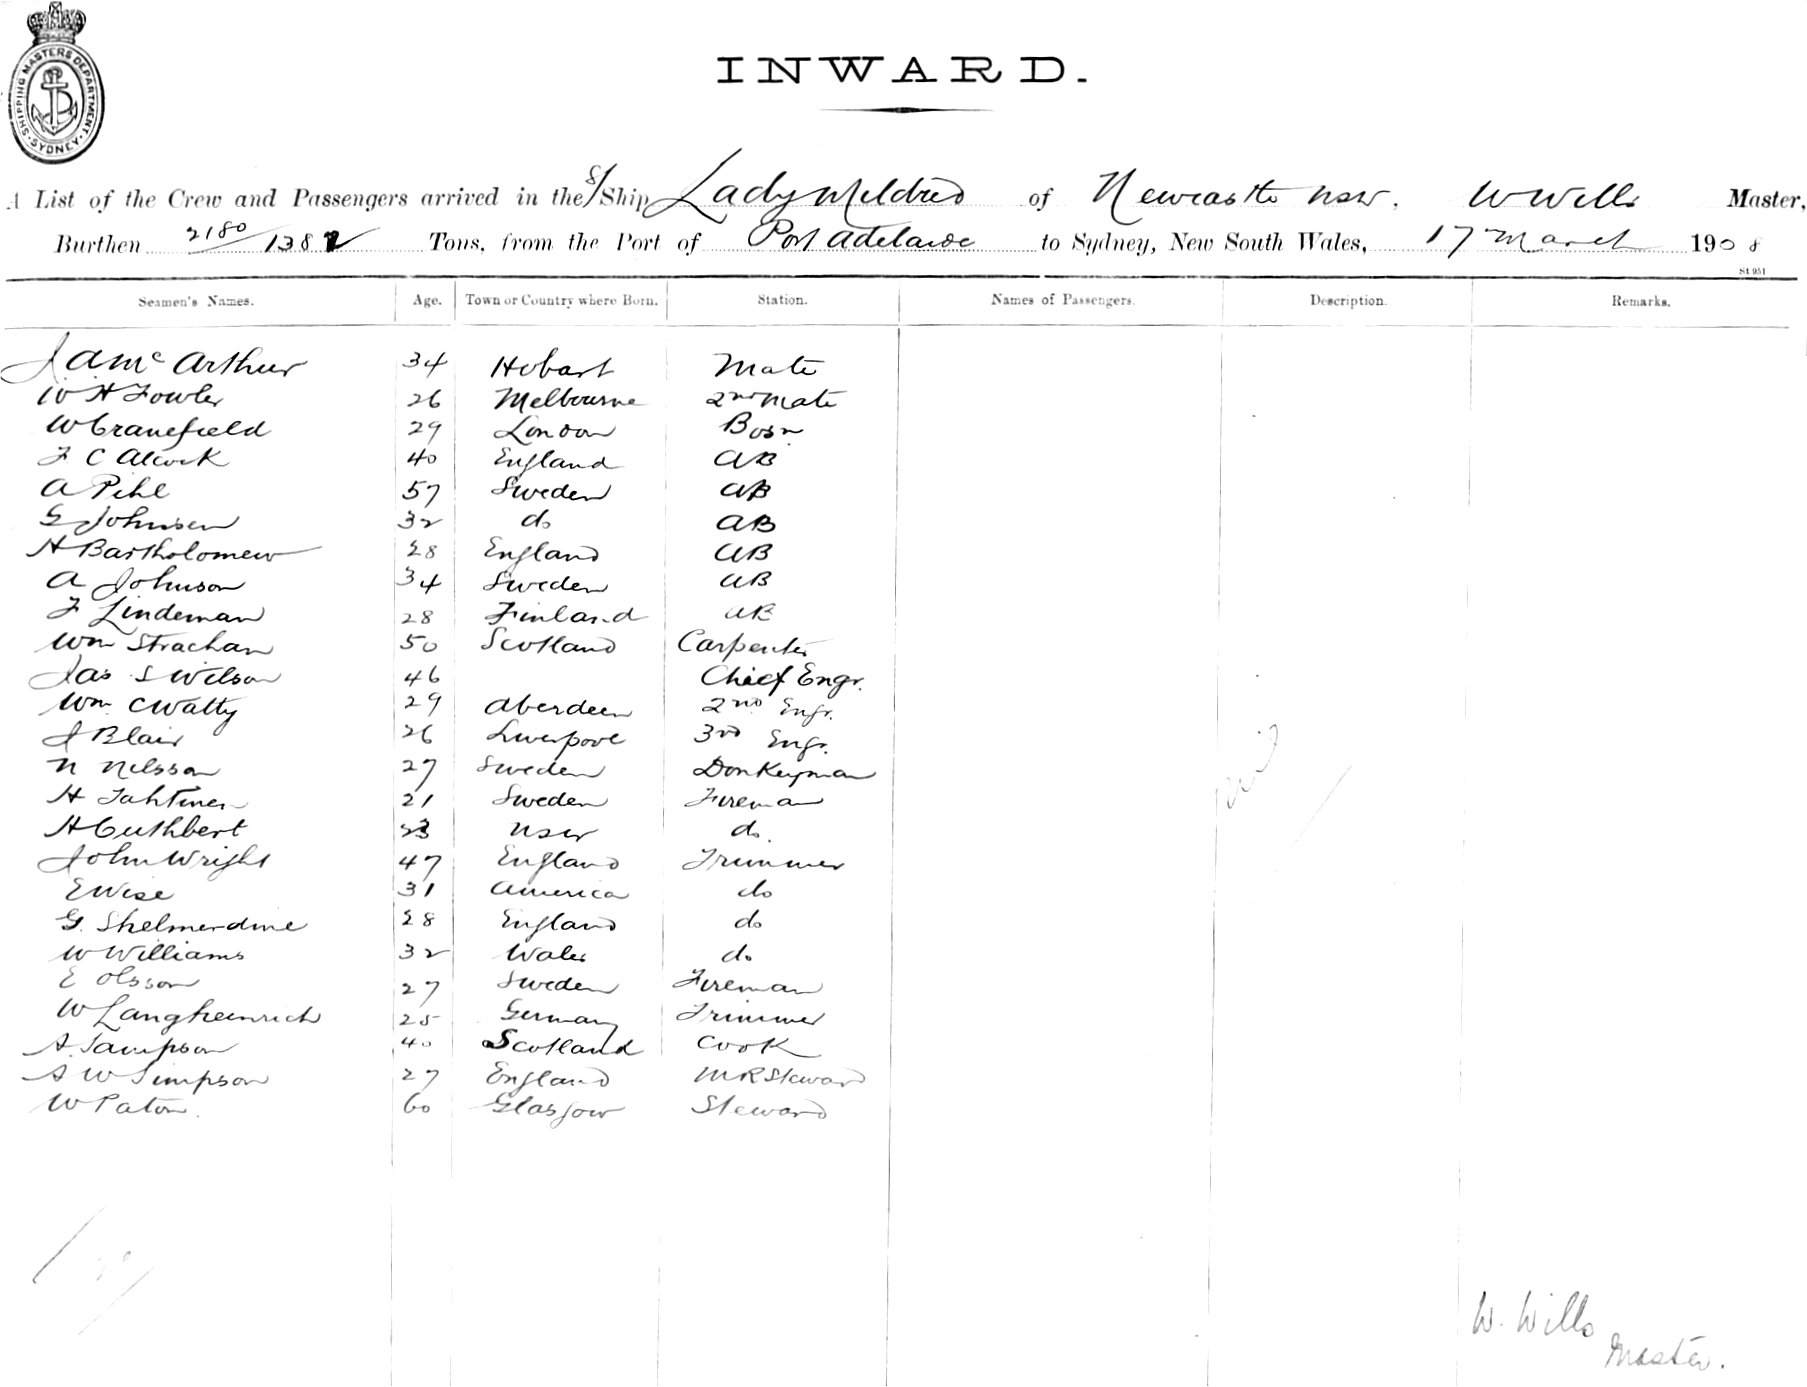 SHIPPING MASTERS DEPARTMENT · SYDNEY ·
INWARD.
A List of the Crew and Passengers arrived in the S/Ship Lady Mildred of Newcastle NSW. W Wills Master,
Burthen 2180/1382 Tons, from the Port of Port Adelaide to Sydney, New South Wales, 17 March 1908
St 951
Seamen's Names. Age. Town or Country where Born. Station. Names of Passengers. Description. Remarks.
J A Mc Arthur 34 Hobart Mate
W H Fowler 26 Melbourne 2nd Mate
W Cranefield 29 London Bosn
F C Alcock 40 England AB
A Pihl 57 Sweden AB
G Johnsen 32 do AB
H Bartholomew 28 England AB
A Johnson 34 Sweden AB
F Lindeman 28 Finland AB
Wm Strachan 50 Scotland Carpenter
Jas S Wilson 46 Chief Engr.
Wm C Watty 29 Aberdeen 2nd Engr.
J Blair 26 Liverpool 3rd Engr.
N Nilsson 27 Sweden Donkeyman
H Tahtinen 21 Sweden Fireman
H Cuthbert 23 NSW do.
John Wright 47 England Trimmer
E Wise 31 America do
G. Shelmerdine 28 England do
W Williams 32 Wales do
E Olsson 27 Sweden Fireman
W Langheinrich 25 Germany Trimmer
A. Sampson 40 Scotland Cook
A W Simpson 27 England M R Steward
W Paton. 60 Glasgow Steward
W. Wills
Master.